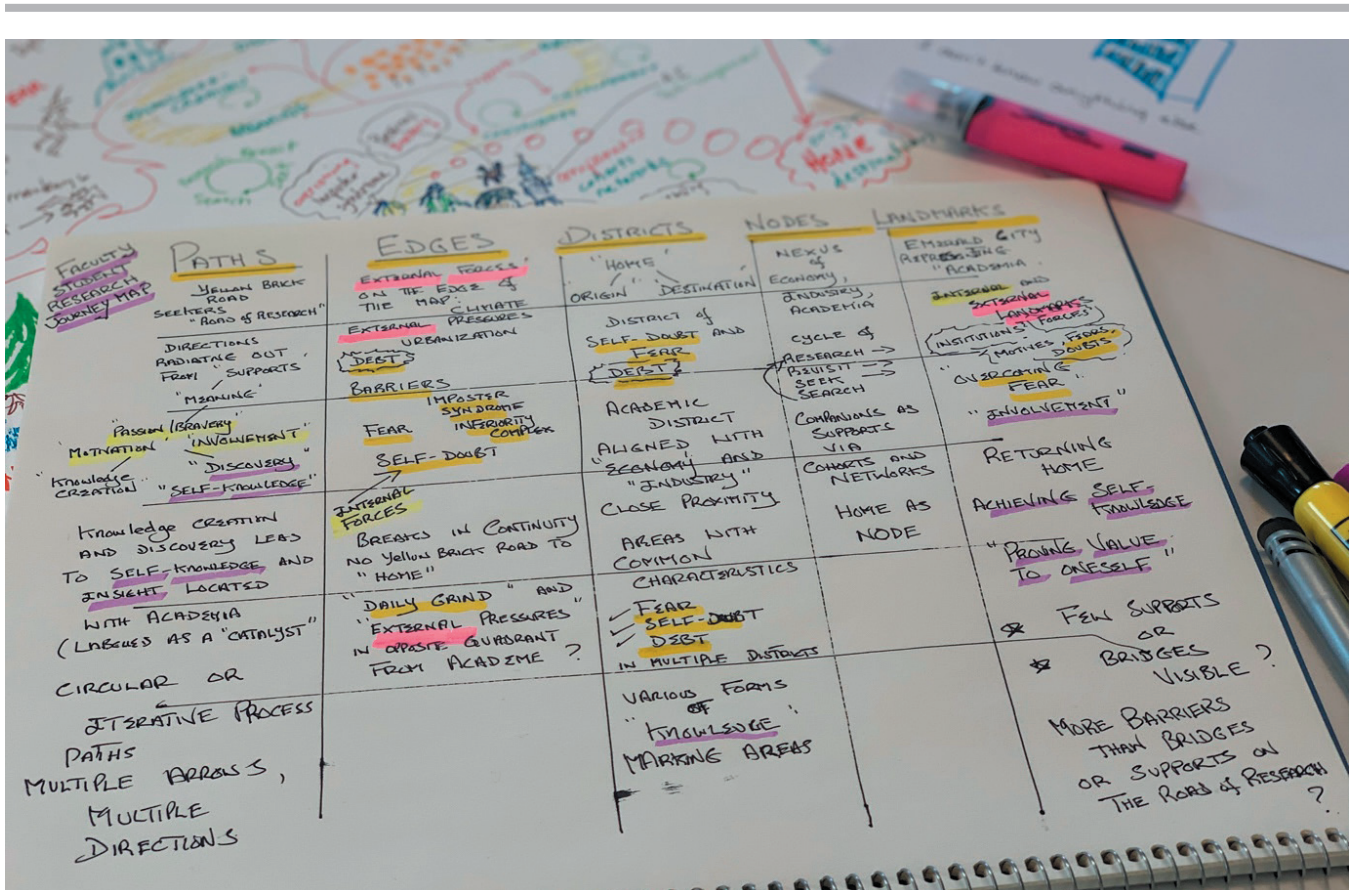 I don't know anything else
Home
destination
cohorts
networks
FACULTY
STUDENT
RESEARCH
JOURNEY MAP
PATHS
YELLOW BRICK
ROAD
SEEKERS
"ROAD of RESEARCH"
DIRECTIONS
RADIATING OUT
FROM "SUPPORTS
"MEANING"
PASSION/BRAVERY
"MOTIVATION" "INVOLVEMENT"
"DISCOVERY"
"KNOWLEDGE
CREATION"
"SELF-KNOWLEDGE"
KNOWLEDGE CREATION
AND DISCOVERY LEAD
TO SELF-KNOWLEDGE AND
INSIGHT LOCATED
WITH ACADEMIA
(LABELED AS A "CATALYST"
CIRCULAR OR
ITERATIVE PROCESS
PATHS
MULTIPLE ARROWS,
MULTIPLE
DIRECTIONS
EDGES
"EXTERNAL FORCES"
ON THE EDGE of
THE MAP: CLIMATE
EXTERNAL PRESSURES
URBANIZATION
DEBT
BARRIERS
IMPOSTER
SYNDROME
FEAR INFERIORITY
COMPLEX
SELF-DOUBT
INTERNAL
FORCES
BREAKS IN CONTINUITY
NO YELLOW BRICK ROAD TO
"HOME"
"DAILY GRIND" AND
"EXTERNAL PRESSURES"
IN OPPOSITE QUADRANT
FROM ACADEME?
DISTRICTS
"HOME"
ORIGIN DESTINATION
DISTRICT of
SELF-DOUBT AND
FEAR
DEBT
ACADEMIC
DISTRICT
ALIGNED WITH
"ECONOMY" AND
"INDUSTRY"
CLOSE PROXIMITY
AREAS WITH
COMMON
CHARACTERISTICS
FEAR
SELF-DOUBT
DEBT
IN MULTIPLE DISTRICTS
VARIOUS FORMS
OF
"KNOWLEDGE"
MARKING AREAS
NODES
NEXUS
of
ECONOMY,
INDUSTRY,
ACADEMIA
CYCLE OF
RESEARCH
REVISIT
SEEK
SEARCH
COMPANIONS AS
SUPPORTS
VIA
COHORTS AND
NETWORKS
HOME AS
NODE
LANDMARKS
EMERALD CITY
REPRESENTING
"ACADEMIA"
INTERNAL AND
EXTERNAL
LANDMARKS
INSTITUTIONS (FORCES)
MOTIVES, FEARS,
DOUBTS
"OVERCOMING
FEAR"
"INVOLVEMENT"
RETURNING
HOME
ACHIEVING SELF-
KNOWLEDGE
"PROVING VALUE
TO ONESELF"
FEW SUPPORTS
OR
BRIDGES
VISIBLE?
MORE BARRIERS
THAN BRIDGES
OR SUPPORTS ON
THE ROAD of RESEARCH
?